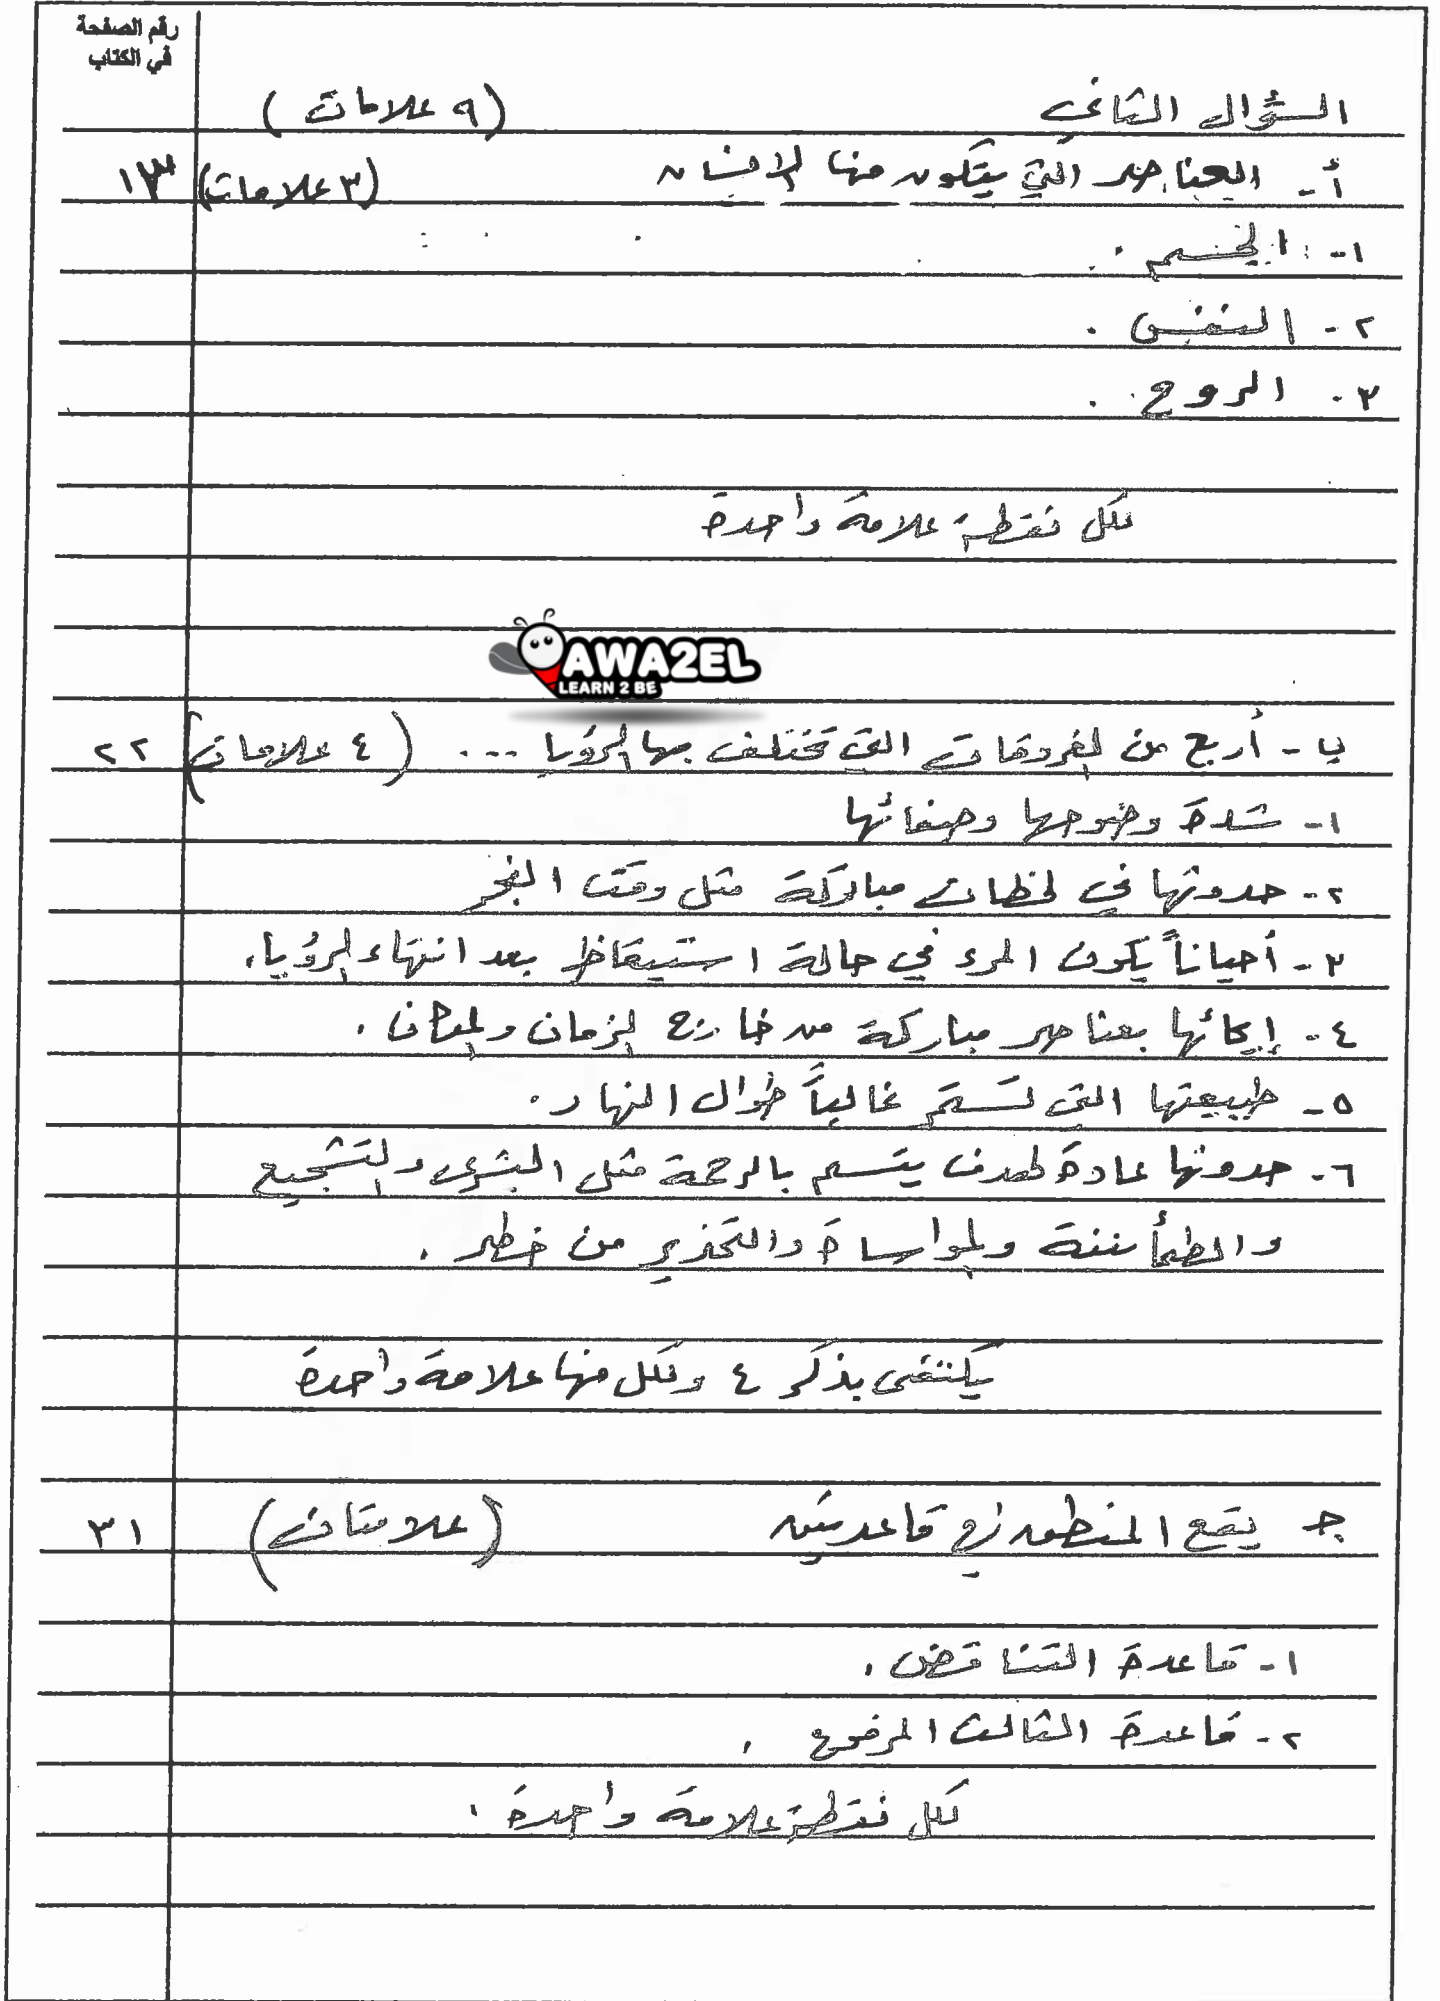 رقم الصفحة
في الكتاب
السؤال الثاني (٩ علامات)
أ- العناصر التي يتكون منها الإنسان (٣ علامات) ١٣
١- الجسم .
٢- النفس .
٣- الروح .
لكل نقطة علامة واحدة
AWA2EL
LEARN 2 BE
ب- أربع من الفروقات التي تختلف بها الرؤيا ... (٤ علامات) ٢٢
١- شدة وضوحها وصفائها
٢- حدوثها في لحظات مباركة مثل وقت الفجر
٣- أحياناً يكون المرء في حالة استيقاظ بعد انتهاء الرؤيا.
٤- إيحائها بعناصر مباركة من خارج الزمان والمكان .
٥- طبيعتها التي تستمر غالباً طوال النهار.
٦- حدوثها عادة لهدف يتسم بالرحمة مثل البشرى والتشجيع
والطمأنينة والمواساة والتحذير من خطر .
يكتفى بذكر ٤ ولكل منها علامة واحدة
ج يقع المنطق في قاعدتين (علامتان) ٣١
١- قاعدة التناقض .
٢- قاعدة الثالث المرفوع .
لكل نقطة علامة واحدة .